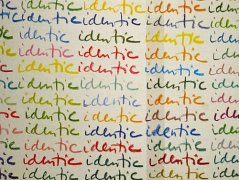 identic identic identic identic
identic identic identic identic
identic identic identic identic
identic identic identic identic
identic identic identic identic
identic identic identic identic
identic identic identic identic
identic identic identic identic
identic identic identic identic
identic identic identic identic
identic identic identic identic